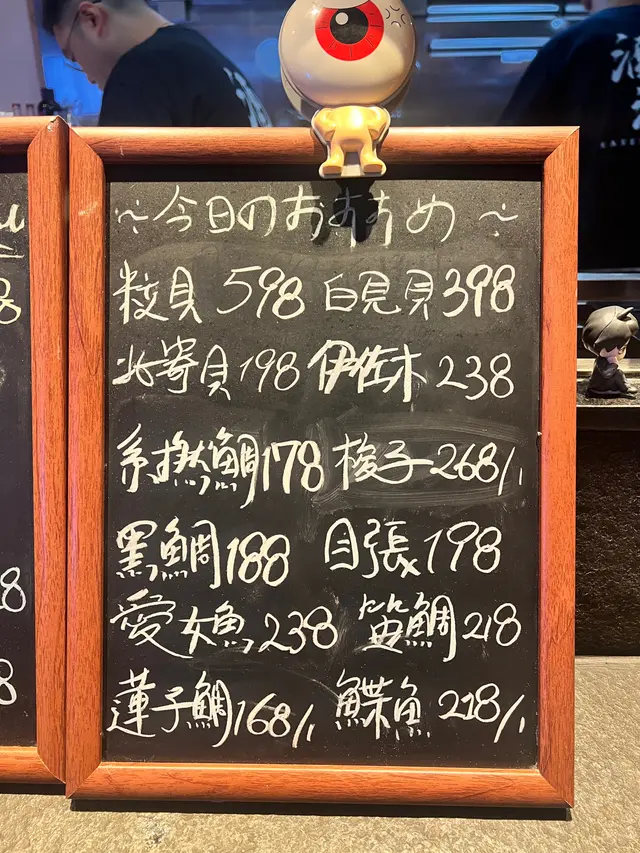 ～今日のおすすめ～
粒貝 598 白見貝 398
北寄貝 198 伊佐木 238
糸撚鯛 178 梭子 268/1
黒鯛 188 目張 198
愛女魚 238 鯛 218
蓮子鯛 168/1 鰈魚 218/1